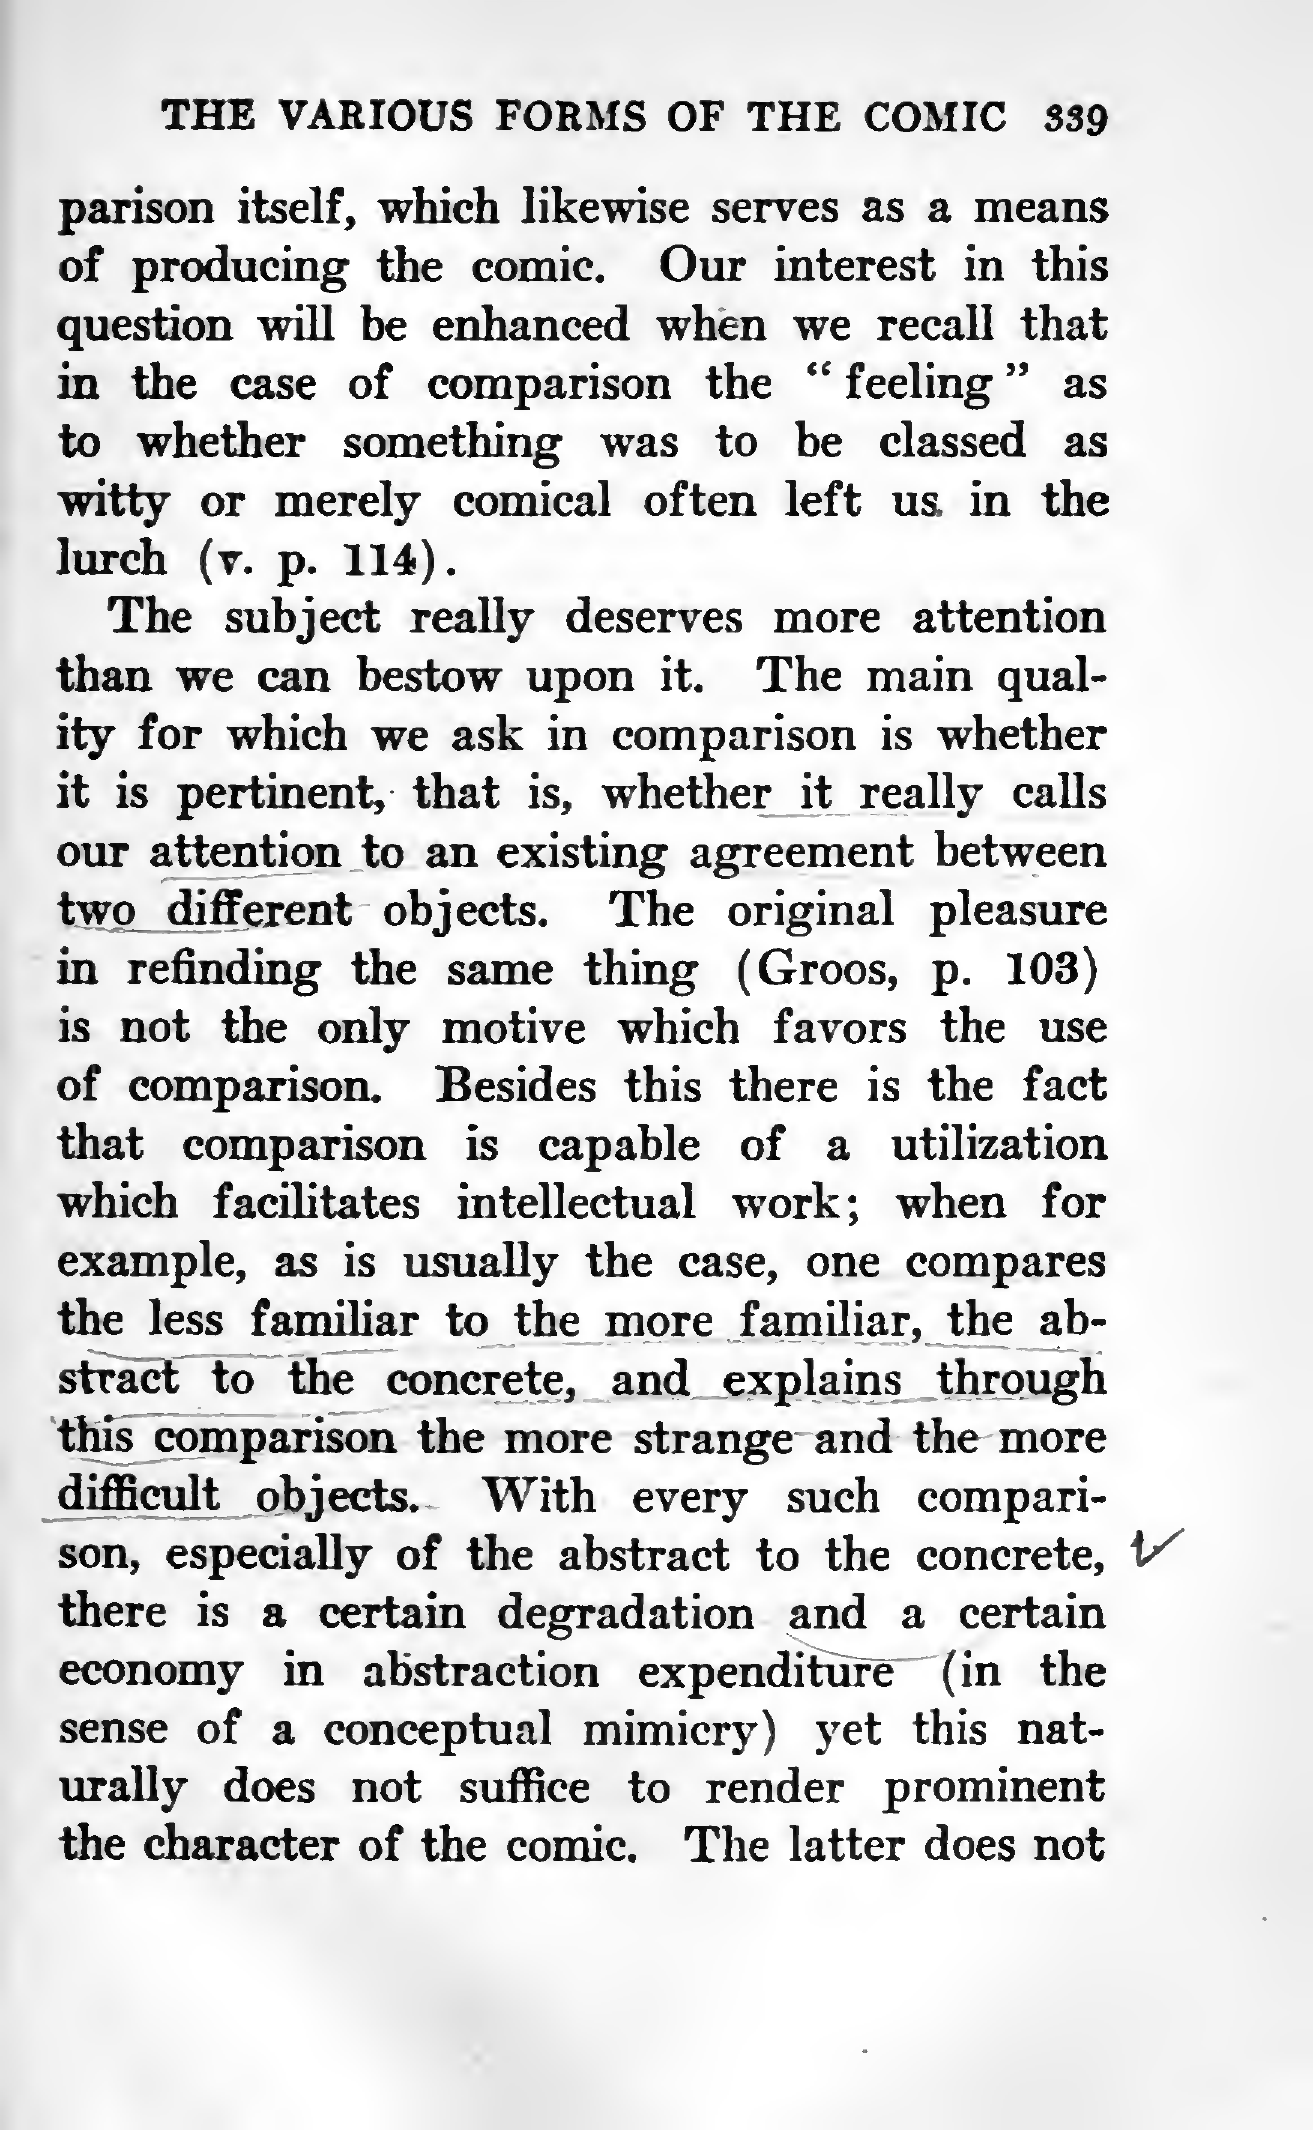 THE VARIOUS FORMS OF THE COMIC 339
parison itself, which likewise serves as a means
of producing the comic. Our interest in this
question will be enhanced when we recall that
in the case of comparison the “feeling” as
to whether something was to be classed as
witty or merely comical often left us in the
lurch (v. p. 114).
The subject really deserves more attention
than we can bestow upon it. The main qual-
ity for which we ask in comparison is whether
it is pertinent, that is, whether it really calls
our attention to an existing agreement between
two different objects. The original pleasure
in refinding the same thing (Groos, p. 103)
is not the only motive which favors the use
of comparison. Besides this there is the fact
that comparison is capable of a utilization
which facilitates intellectual work; when for
example, as is usually the case, one compares
the less familiar to the more familiar, the ab-
stract to the concrete, and explains through
this comparison the more strange and the more
difficult objects. With every such compari-
son, especially of the abstract to the concrete,
there is a certain degradation and a certain
economy in abstraction expenditure (in the
sense of a conceptual mimicry) yet this nat-
urally does not suffice to render prominent
the character of the comic. The latter does not